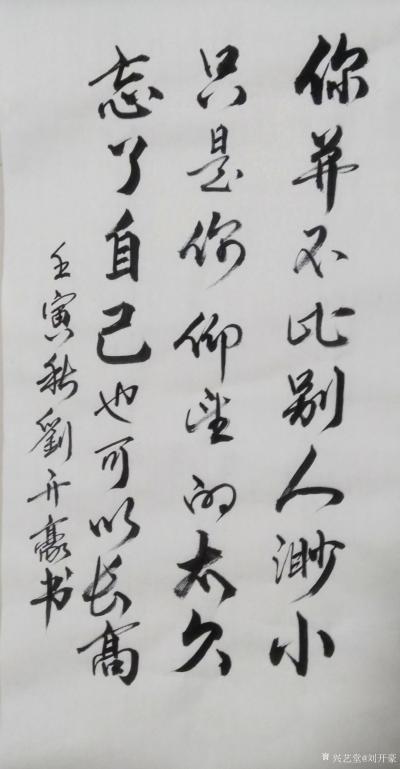 你并不比别人渺小
只是你仰望的太久
忘了自己也可以长高
壬寅秋劉开豪书
兴艺堂@刘开豪